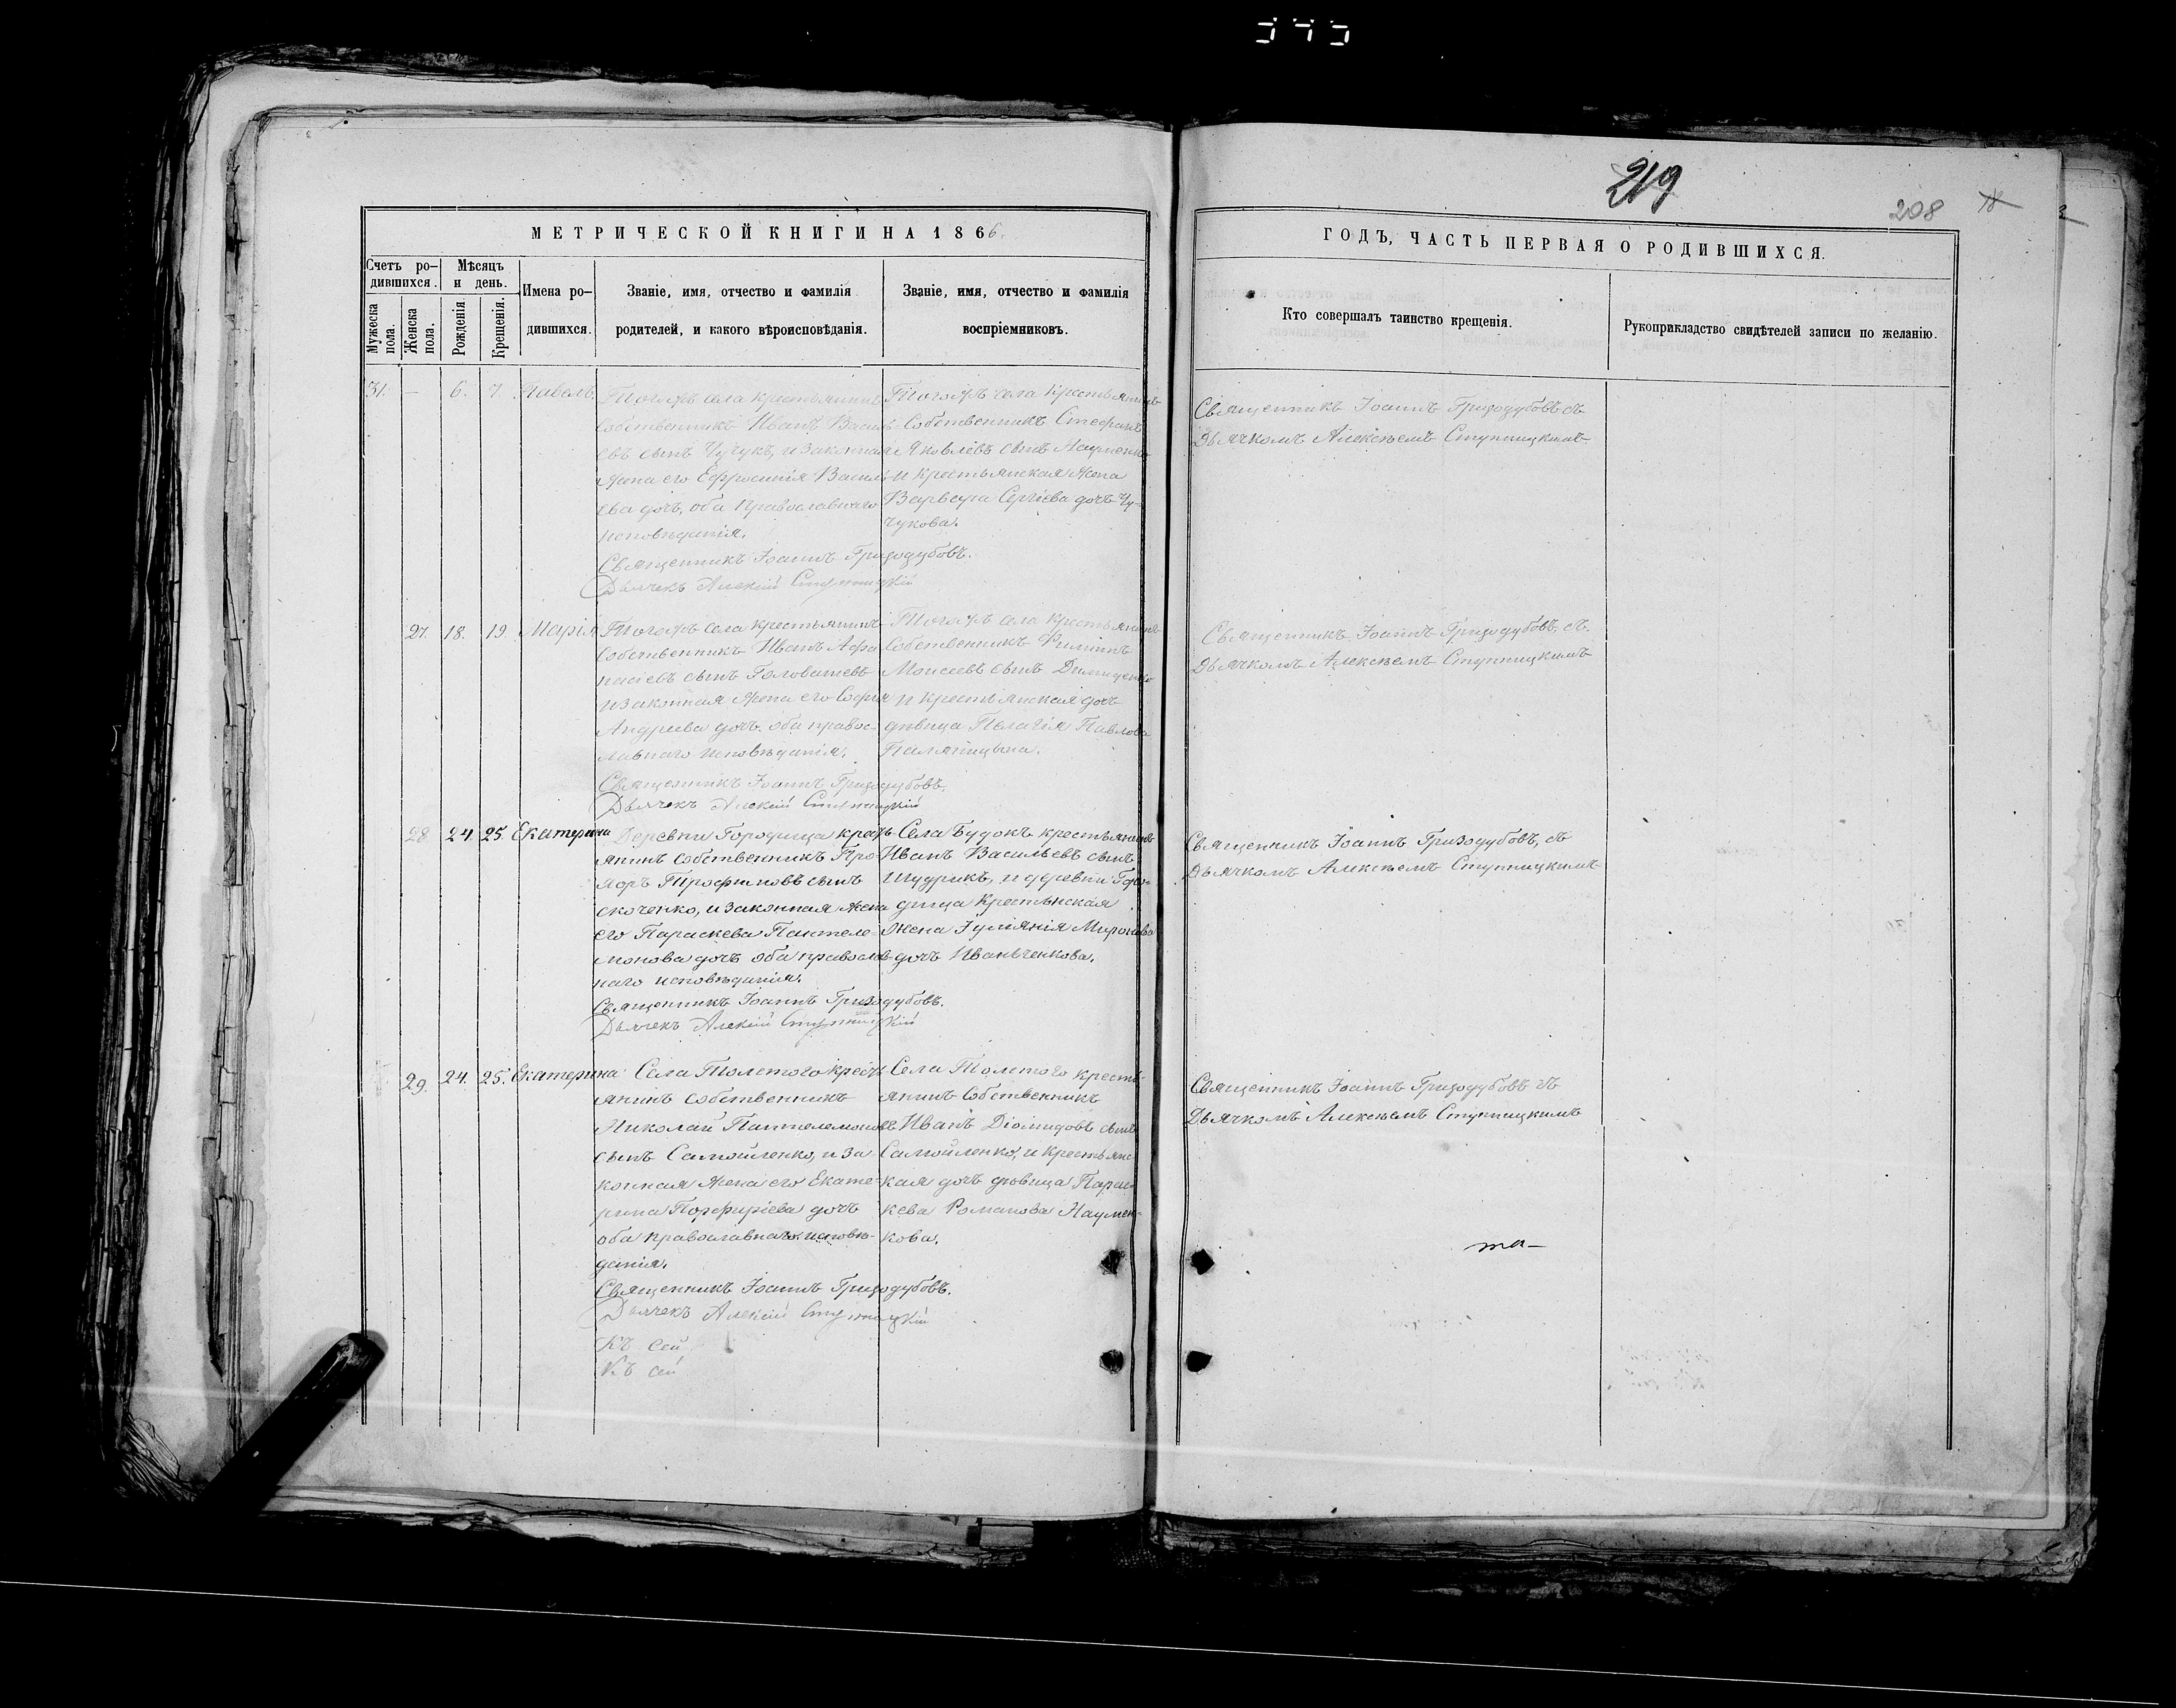 219
208
18
МЕТРИЧЕСКОЙ КНИГИ НА 1866.
ГОДЪ, ЧАСТЬ ПЕРВАЯ О РОДИВШИХСЯ.
Счетъ ро-
дившихся.
Мѣсяцъ
и день.
Мужеска
пола.
Женска
пола.
Рожденія
Крещенія.
Имена ро-
дившихся.
Званіе, имя, отчество и фамилія
родителей, и какого вѣроисповѣданія.
Званіе, имя, отчество и фамилія
воспріемниковъ.
Кто совершалъ таинство крещенія.
Рукоприкладство свидѣтелей записи по желанію.
31. — 6. 7. Павелъ.
Тогожъ села крестьянинъ
Собственникъ Иванъ Василь-
евъ сынъ Чучукъ, и законная
жена его Ефросинія Василі-
ева дочъ, оба православнаго
исповѣданія.
Священникъ Іоаннъ Гризодубовъ.
Дьячекъ Алексій Ступницкій
Тогожъ села крестьянинъ
Собственникъ Стефанъ
Яковлевъ сынъ Науменко
и крестьянская жена
Варвара Сергіева дочъ Чу-
чукова.
Священникъ Іоаннъ Гризодубовъ съ
Дьячкомъ Алексѣемъ Ступницкимъ
27. 18. 19. Марія
Тогожъ села крестьянинъ
Собственникъ Иванъ Афа-
насіевъ сынъ Головатевъ
и законная жена его Софія
Андреева дочъ. оба правос-
лавнаго исповѣданія.
Священникъ Іоаннъ Гризодубовъ.
Дьячекъ Алексій Ступницкій
Тогожъ села крестьянинъ
Собственникъ Филиппъ
Моисеевъ сынъ
и крестьянская дочъ
дѣвица Пелагія Павлова
Священникъ Іоаннъ Гризодубовъ, съ
Дьячкомъ Алексѣемъ Ступницкимъ
28 24. 25. Екатерина
Деревни Городища кресть-
янинъ Собственникъ Про-
Трофимовъ сынъ
скоченко, и законная жена
его Параскева Пантеле-
монова дочъ оба православ-
наго исповѣданія.
Священникъ Іоаннъ Гризодубовъ.
Дьячекъ Алексій Ступницкій
Села Будокъ крестьянинъ
Иванъ Васильевъ сынъ
Шудрикъ, и деревни Горо-
дища крестьянская
жена Іуліянія Миронова
дочъ Иваньченкова.
Священникъ Іоаннъ Гризодубовъ, съ
Дьячкомъ Алексѣемъ Ступницкимъ
29. 24. 25. Екатерина
Села Толстого кресть-
янинъ Собственникъ
Николай Пантелемоновъ
сынъ Самойленко, и за-
конная жена его Екате-
рина Порфиріева дочъ
оба православнаго исповѣ-
данія.
Священникъ Іоаннъ Гризодубовъ.
Дьячекъ Алексій Ступницкій
Къ сей
Къ сей
Села Толстого кресть-
янинъ Собственникъ
Иванъ Діомидовъ сынъ
Самойленко, и крестьянс-
кая дочъ дѣвица Парас-
кева Романова Наумен-
кова.
Священникъ Іоаннъ Гризодубовъ съ
Дьячкомъ Алексѣемъ Ступницкимъ
та-